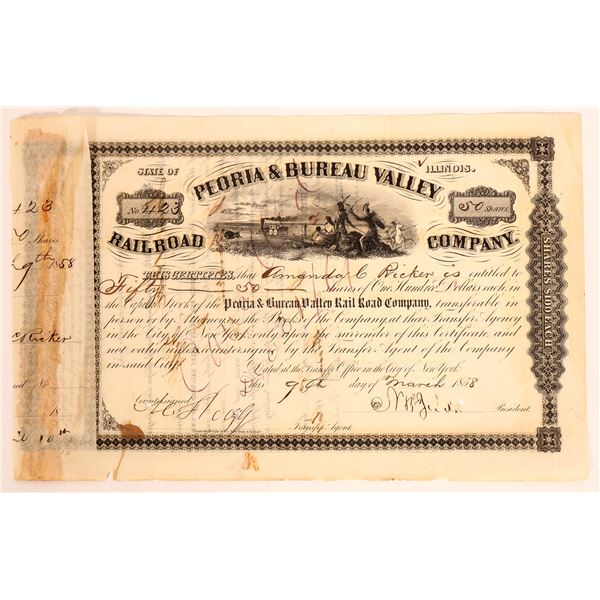 STATE OF ILLINOIS.
PEORIA & BUREAU VALLEY
No. 423
50 Shares
RAILROAD COMPANY.
THIS CERTIFIES, that Amanda C Ricker is entitled to
Fifty 50 Shares of One Hundred Dollars each, in
the Capital Stock of the Peoria & Bureau Valley Rail Road Company, transferable in
person or by Attorney on the Books of the Company at their Transfer Agency
in the City of New York only upon the surrender of this Certificate and
not valid unless countersigned by the Transfer Agent of the Company
in said City.
Dated at the Transfer Office in the City of New York
this 9th day of March 1858
Countersigned
President.
Transfer Agent.
SHARES $100 EACH
423
Shares
9th 1858
Ricker
18
10th